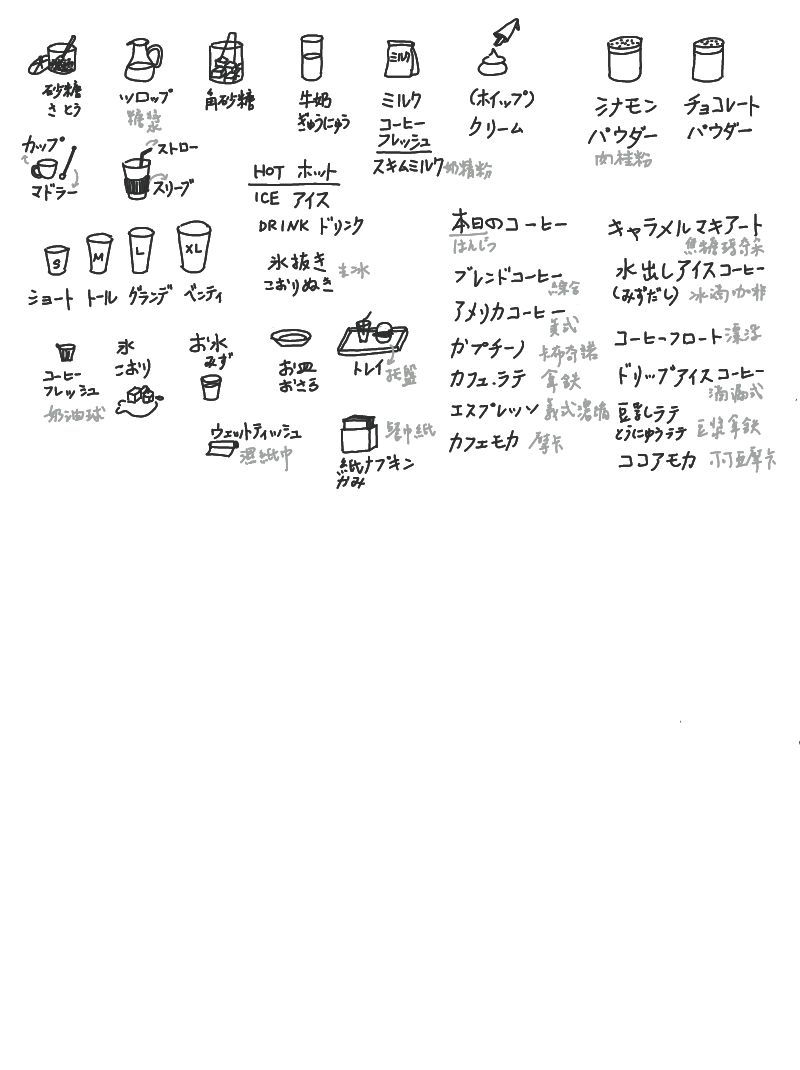 砂糖
さとう
シロップ
糖漿
角砂糖
牛奶
ぎゅうにゅう
ミルク
ミルク
コーヒー
フレッシュ
スキムミルク 奶精粉
(ホイップ)
クリーム
シナモン
パウダー
肉桂粉
チョコレート
パウダー
カップ
マドラー
ストロー
スリーブ
HOT ホット
ICE アイス
DRINK ドリンク
氷抜き
こおりぬき
去冰
S
M
L
XL
ショート トール グランデ ベンティ
コーヒー
フレッシュ
奶油球
氷
こおり
お水
みず
お皿
おさら
トレイ
托盤
ウェットティッシュ
濕紙巾
紙ナプキン
かみ
餐巾紙
本日のコーヒー
ほんじつ
ブレンドコーヒー
綜合
アメリカコーヒー
美式
カプチーノ 卡布奇諾
カフェ・ラテ 拿鉄
エスプレッソ 義式濃縮
カフェモカ 摩卡
キャラメルマキアート
焦糖瑪奇朵
水出しアイスコーヒー
(みずだし) 冰滴咖啡
コーヒーフロート 漂浮
ドリップアイスコーヒー
滴漏式
豆乳ラテ
とうにゅうラテ
豆漿拿鉄
ココアモカ 可可亞摩卡